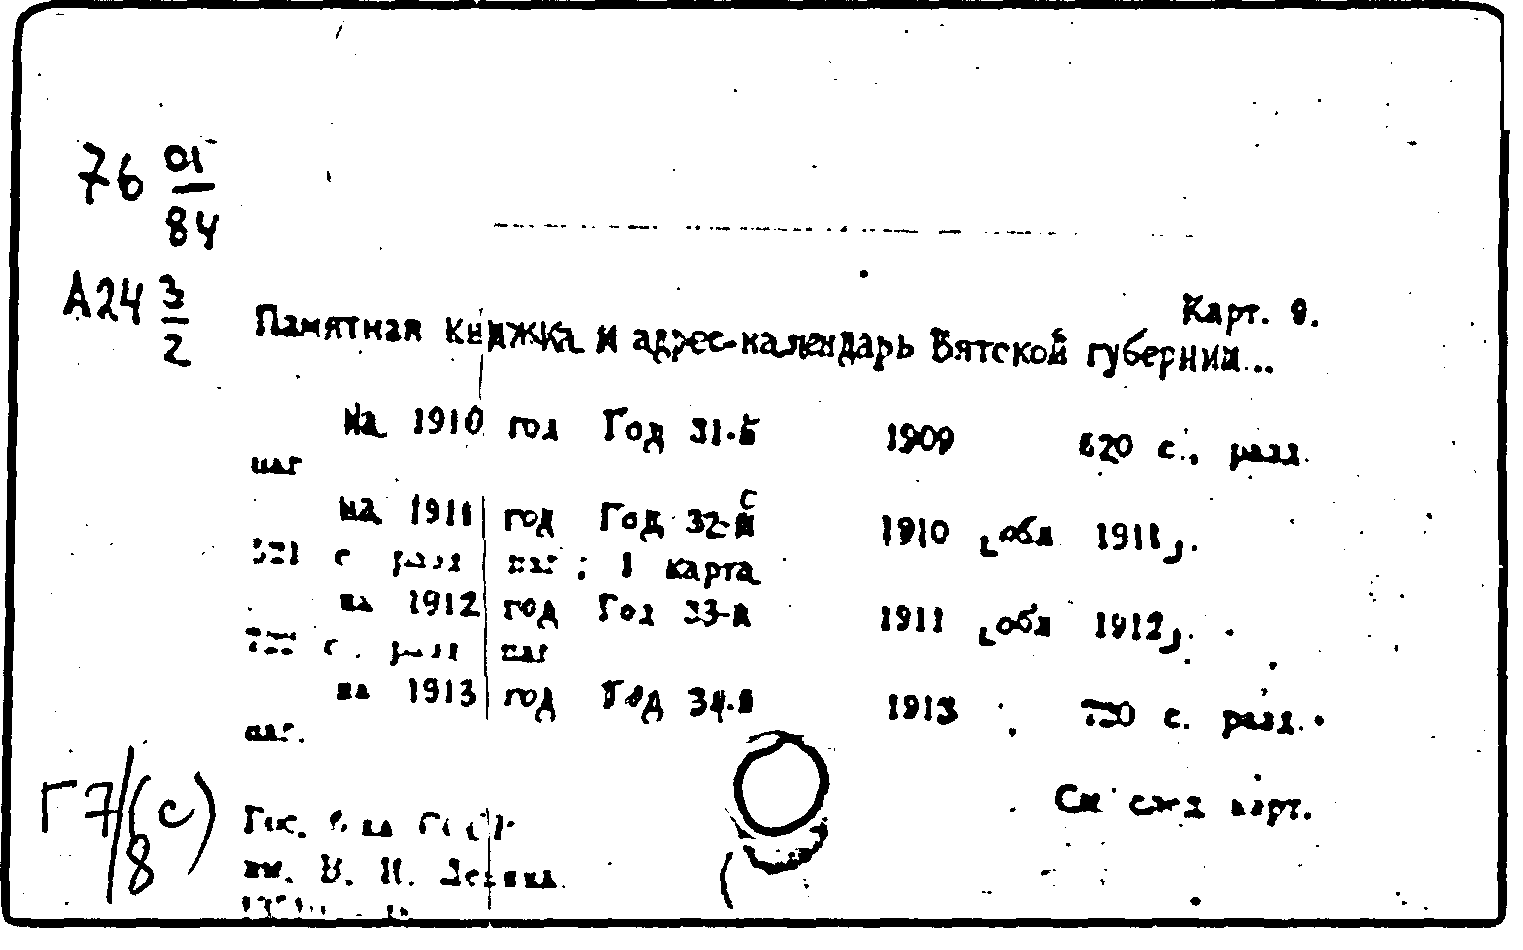 76 01/84
А24 3/2
Карт. 9.
Памятная книжка и адрес-календарь Вятской губернии...
на 1910 год Год 31-й 1909 620 с., разд.
паг
на 1911 год Год 32-й с 1910 [обл 1911].
с разд паг; 1 карта
на 1912 год Год 33-й 1911 [обл 1912].
с. разд паг
на 1913 год Год 34-й 1913 с. разд.
паг.
См след карт.
Г7/8(с)
Гос. б-ка СССР
им. В. И. Ленина